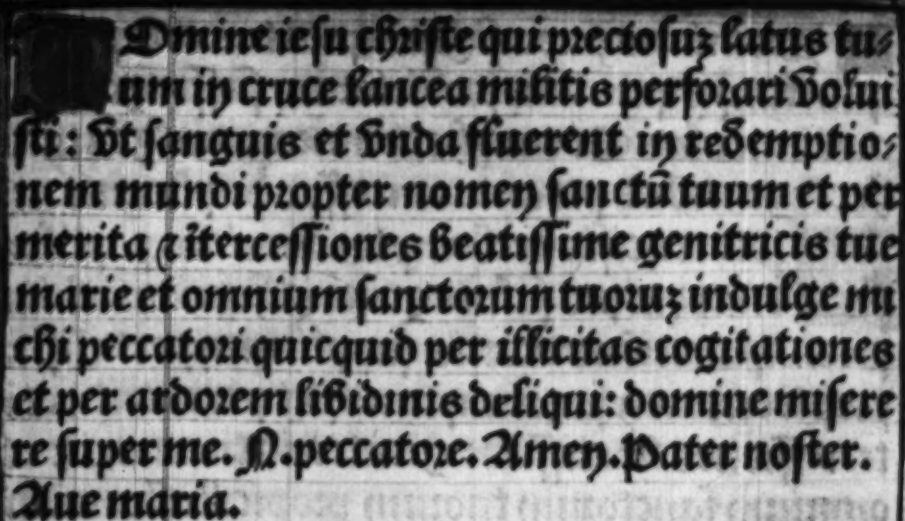 Dmine iesu christe qui preciosuz latus tu⸗
um in cruce lancea militis perforari volui
sti: vt sanguis et vnda fluerent in redemptio⸗
nem mundi propter nomen sanctū tuum et per
merita ⁊ ītercessiones beatissime genitricis tue
marie et omnium sanctorum tuoruz indulge mi
chi peccatori quicquid per illicitas cogitationes
et per ardorem libidinis deliqui: domine misere
re super me. N. peccatore. Amen. Pater noster.
Aue maria.